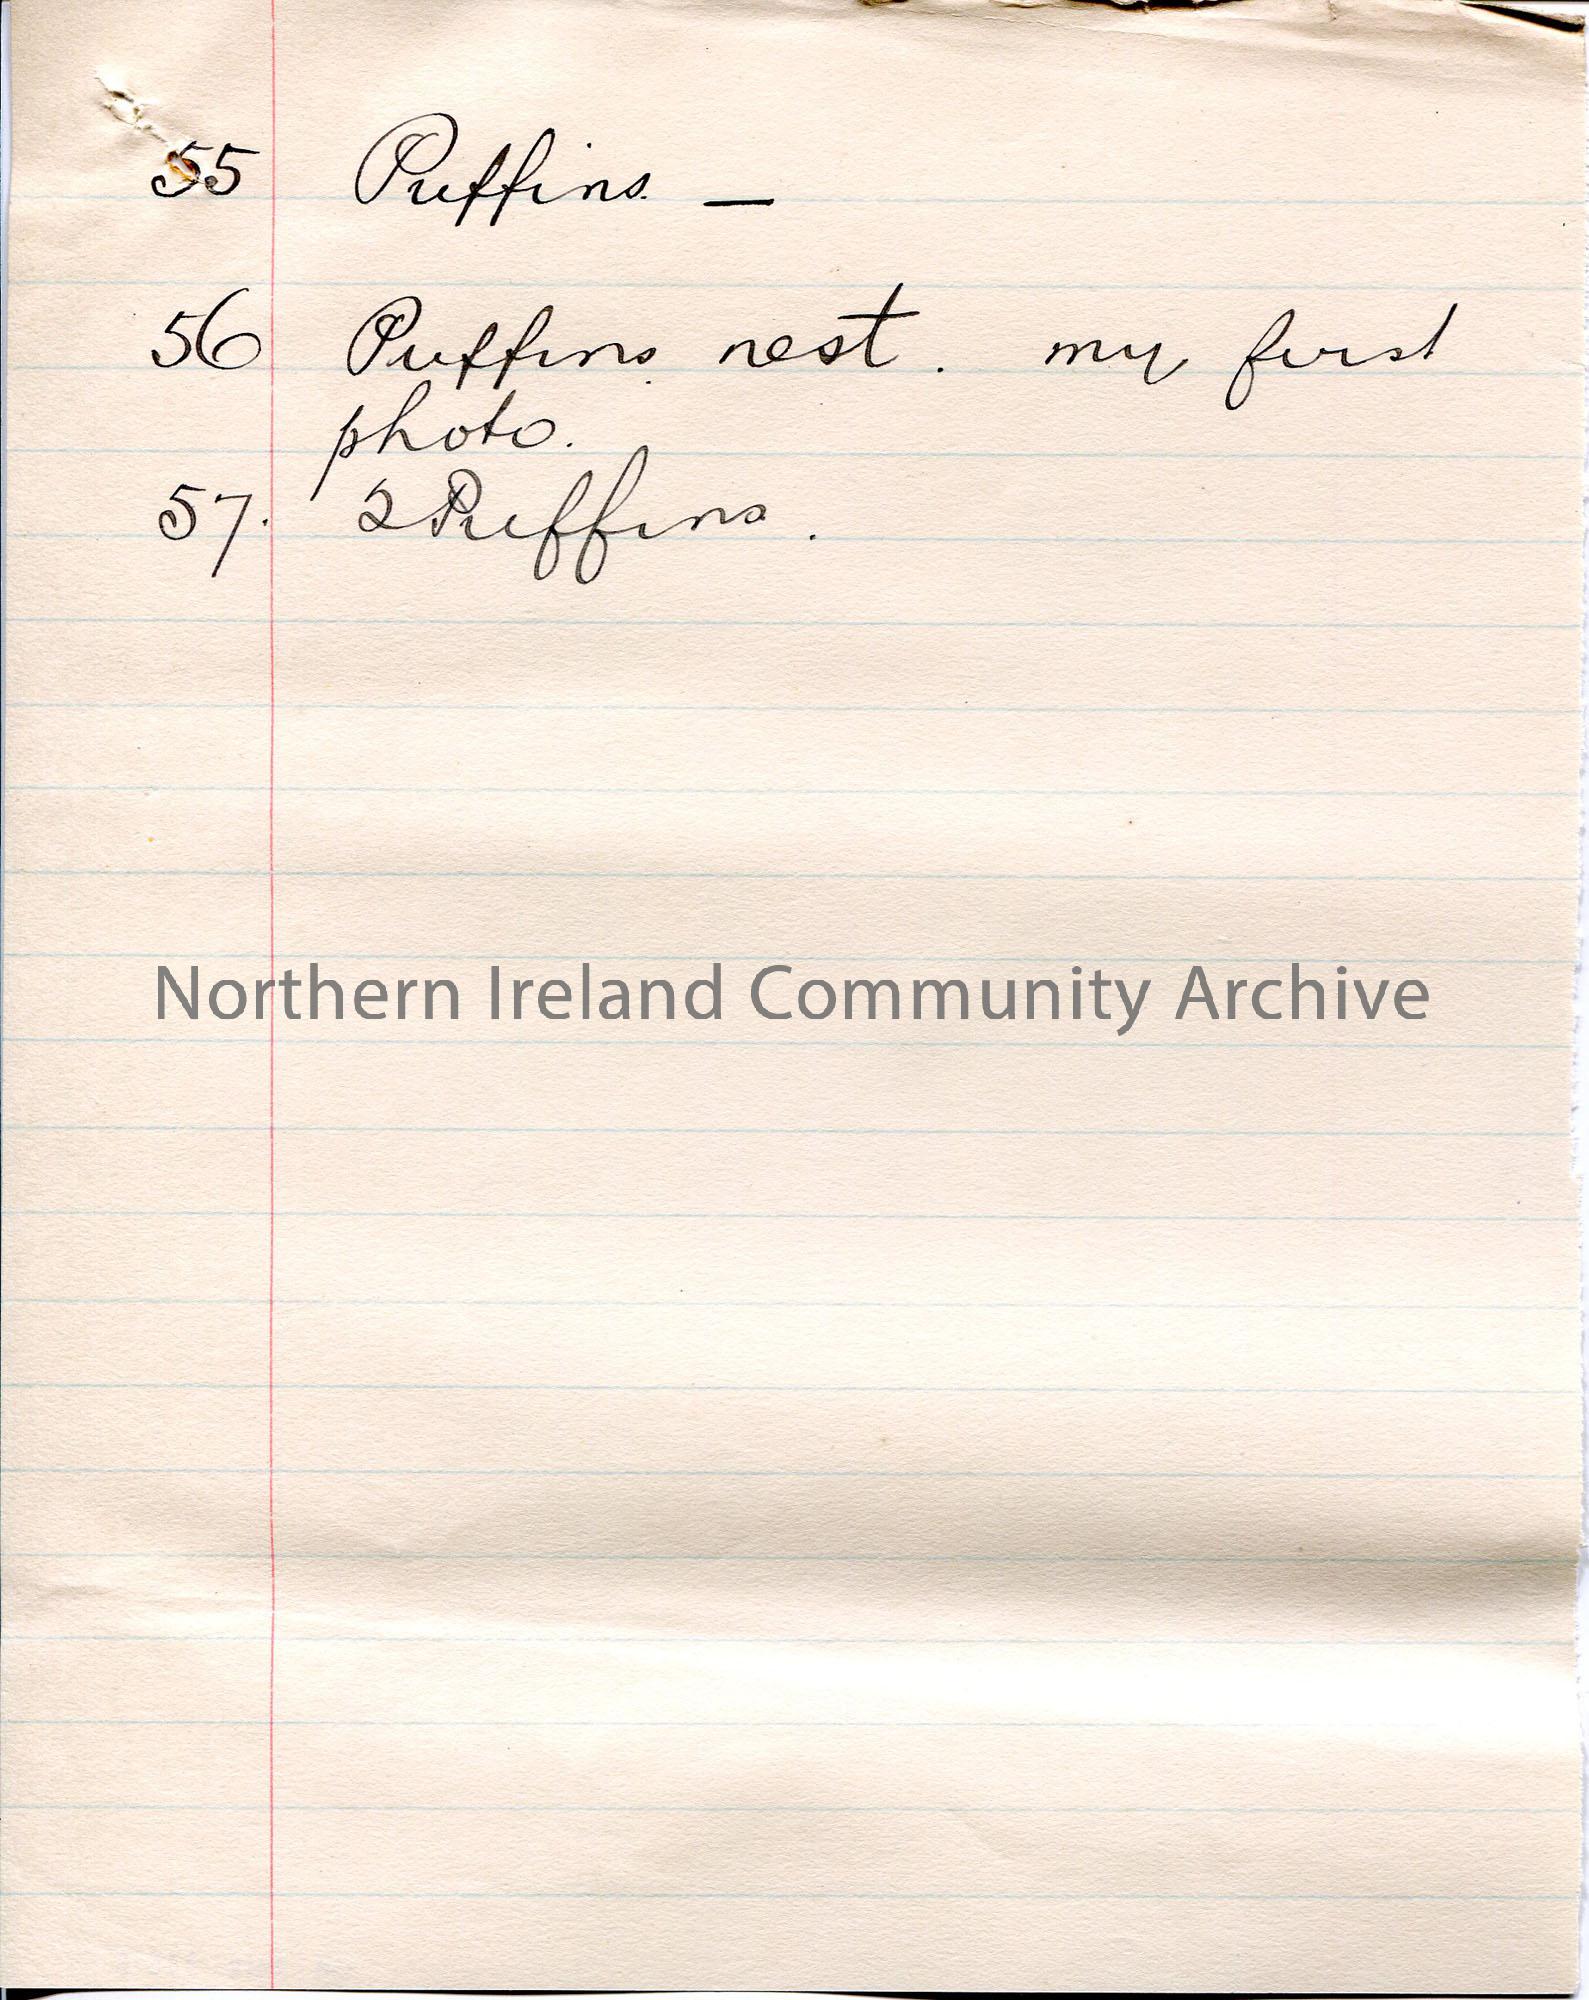 55 Puffins. —
56 Puffins nest. my first
photo.
57. 2 Puffins.
Northern Ireland Community Archive